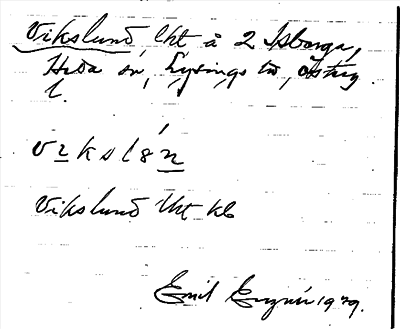 Vikslund, lht å 2 Isberga,
Heda sn, Lysings hd, Östergl.
vikslån
Vikslund lht kb
Emil Engnér 1929.